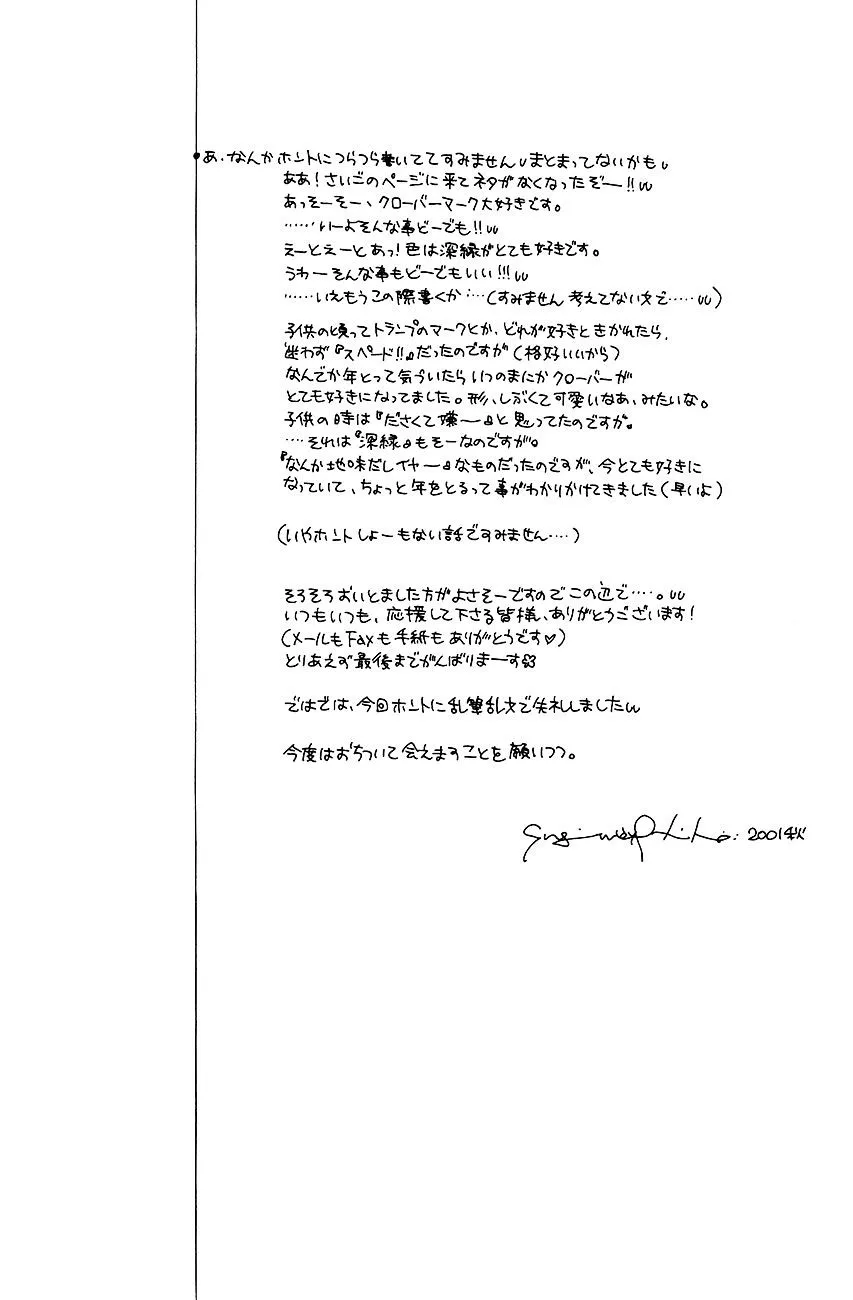 あ、なんかホントにつらつら書いててすみません、まとまってないかも、
ああ！さいごのページに来てネタがなくなったぞー!!
あっそーそー、クローバーマーク大好きです。
……いーよそんな事どーでも!!
えーとえーとあっ！色は深緑がとても好きです。
うわーそんな事もどーでもいい!!!
……いえもうこの際書くか…(すみません考えてない文で……)
子供の頃ってトランプのマークとか、どれが好きときかれたら、
迷わず『スペード!!』だったのですが(格好いいから)
なんでか年とって気づいたらいつのまにかクローバーが
とても好きになってました。形、しぶくて可愛いなあ、みたいな。
子供の時は『ださくて嫌〜』と思ってたのですが。
…それは『深緑』もそーなのですが。
『なんか地味だしイヤー』なものだったのですが、今とても好きに
なっていて、ちょっと年をとるって事がわかりかけてきました(早いよ)
(いやホントしょーもない話ですみません…)
そろそろおいとました方がよさそーですのでこの辺で…。
いつもいつも、応援して下さる皆様、ありがとうございます！
(メールもFaxも手紙もありがとうです♡)
とりあえず最後までがんばりまーす
ではでは、今回ホントに乱筆乱文で失礼しました
今度はおちついて会えますことを願いつつ。
2001秋